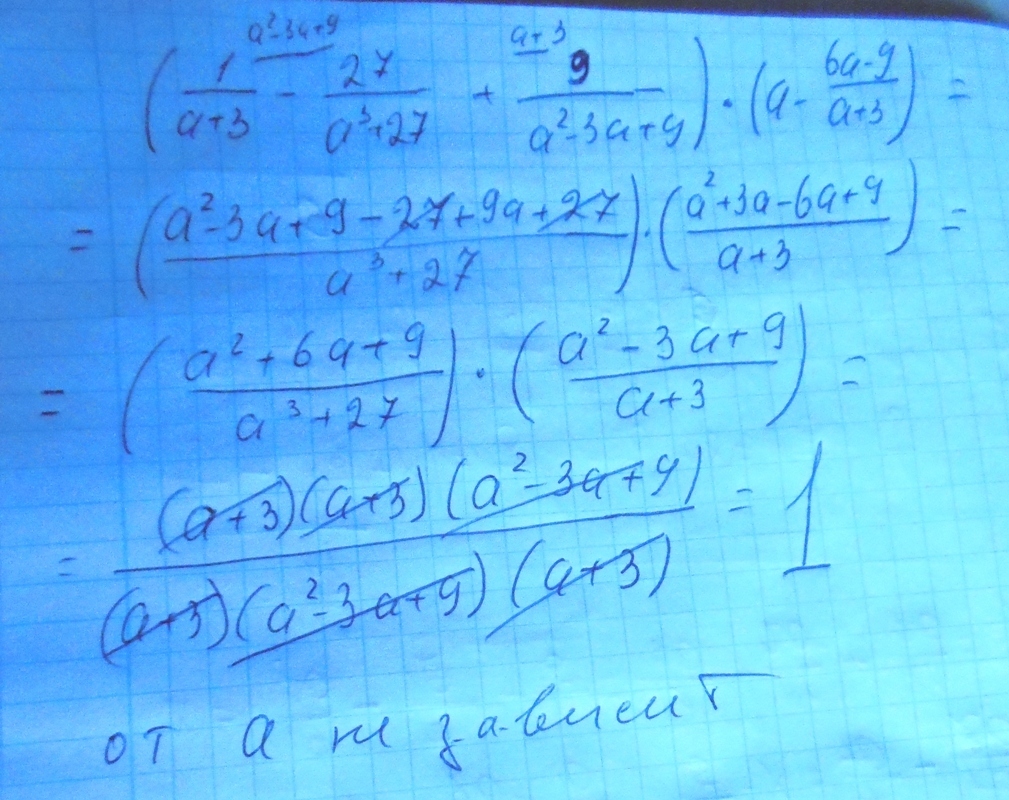 a²-3a+9 a+3
(1/(a+3) - 27/(a³+27) + 9/(a²-3a+9)) · (a - (6a-9)/(a+3)) =
= ((a²-3a+9-27+9a+27)/(a³+27)) · ((a²+3a-6a+9)/(a+3)) =
= ((a²+6a+9)/(a³+27)) · ((a²-3a+9)/(a+3)) =
= ((a+3)(a+3)(a²-3a+9))/((a+3)(a²-3a+9)(a+3)) = 1
от a не зависит